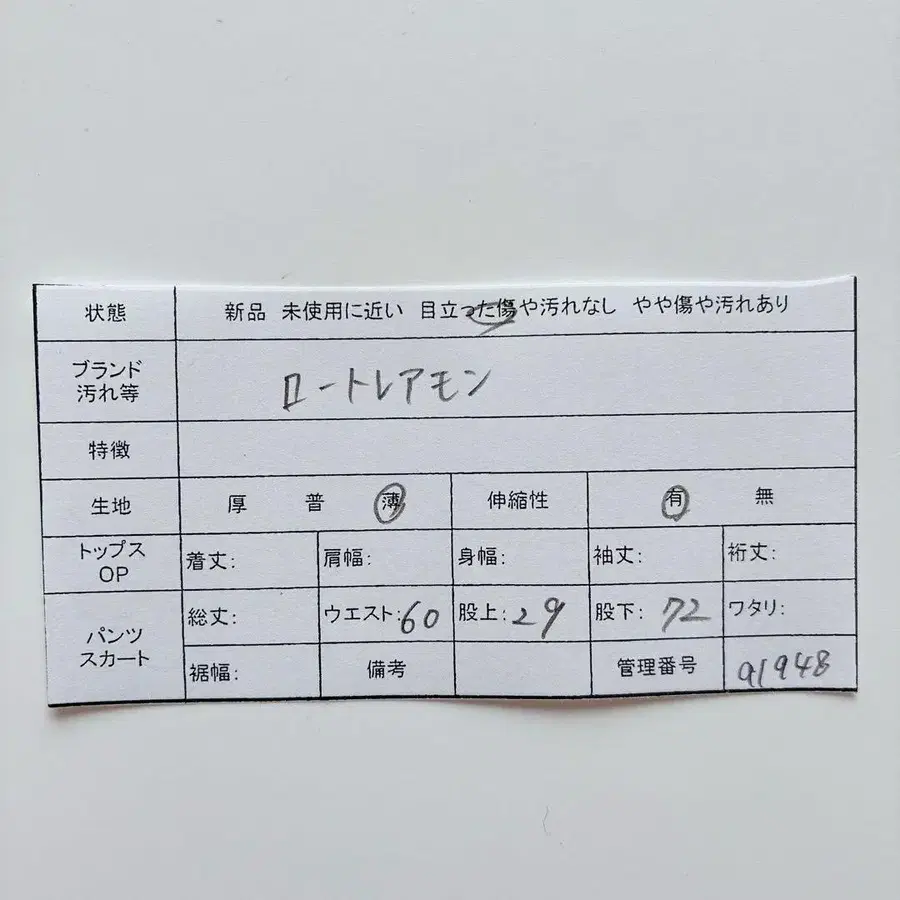 状態 新品 未使用に近い 目立った傷や汚れなし やや傷や汚れあり
ブランド
汚れ等
ロートレアモン
特徴
生地 厚 普 薄 伸縮性 有 無
トップス
OP
着丈: 肩幅: 身幅: 袖丈: 裄丈:
パンツ
スカート
総丈: ウエスト:60 股上:29 股下:72 ワタリ:
裾幅: 備考 管理番号 91948